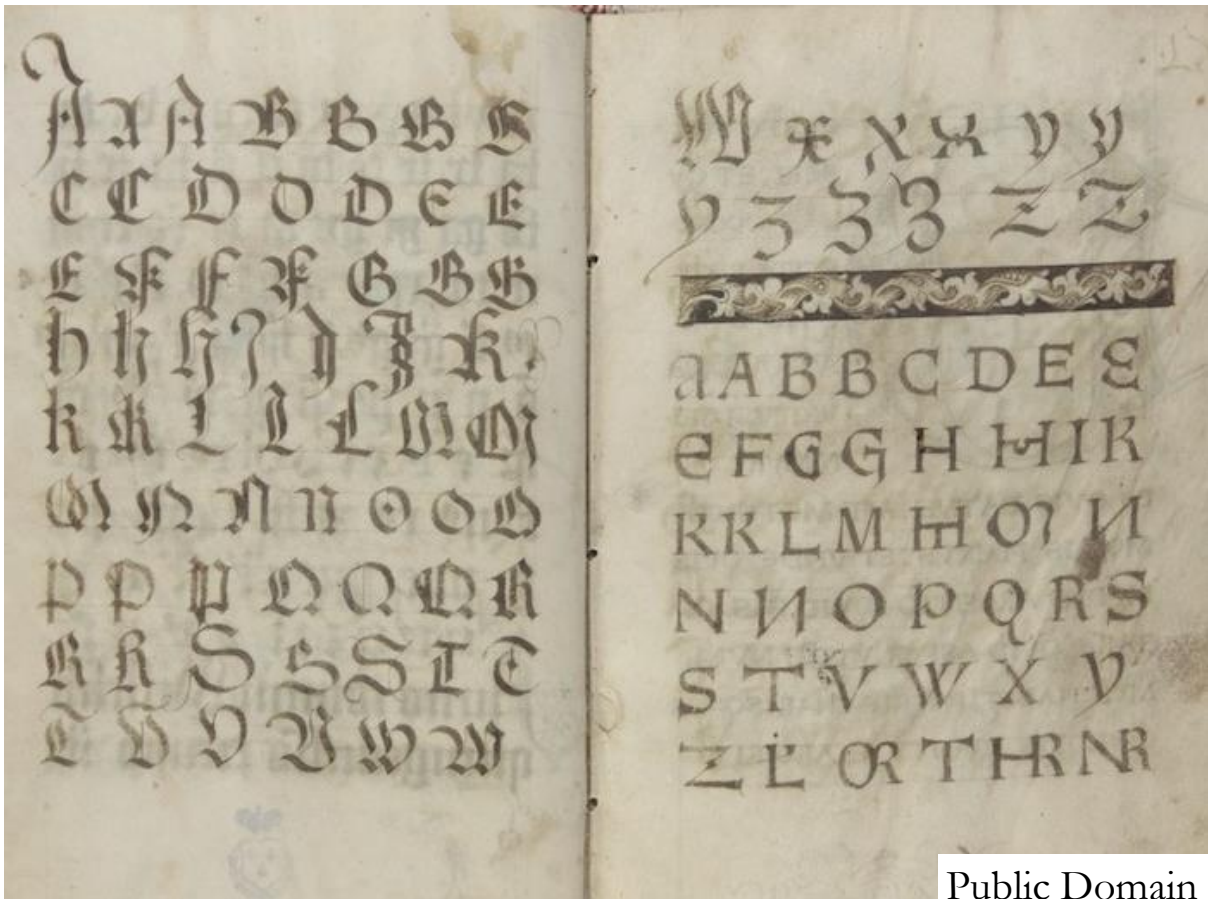 A A A B B B B
C C D D D E E
E F F F G G G
h h h I I I K
k K L L L M M
M N N N O O O
P P P Q Q Q R
R R S S S T T
T V V V W W
W X X X Y Y
Y Z Z Z Z Z
A A B B C D E E
E F G G H H I K
K K L M M M N
N N O P Q R S
S T V W X Y
Z L OR T HR NR
Public Domain